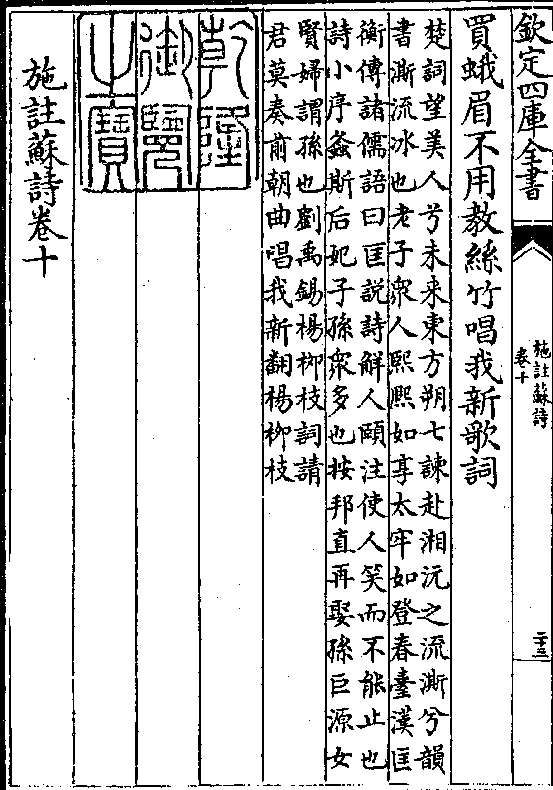 欽定四庫全書
施註蘇詩
卷十
二十三
買蛾眉不用教絲竹唱我新歌詞
楚詞望美人兮未来東方朔七諫赴湘沅之流澌兮韻
書澌流冰也老子衆人熙熙如享太牢如登春臺漢匡
衡傳諸儒語曰匡説詩解人頤注使人笑而不能止也
詩小序螽斯后妃子孫衆多也按邦直再娶孫巨源女
賢婦謂孫也劉禹錫楊栁枝詞請
君莫奏前朝曲唱我新翻楊栁枝
乾隆
御覽
之寶
施註蘇詩卷十